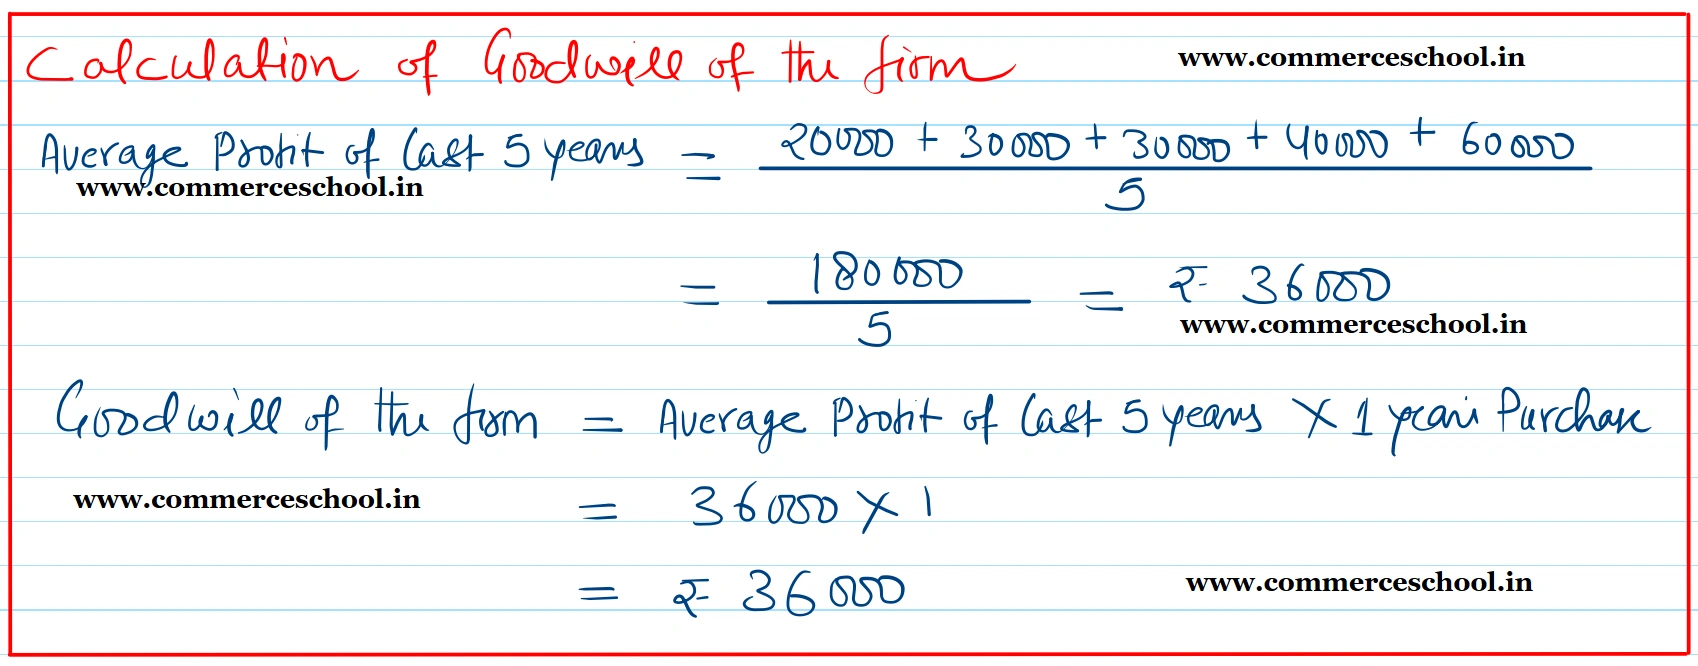 Calculation of Goodwill of the firm www.commerceschool.in
Average Profit of last 5 years = 20000 + 30000 + 30000 + 40000 + 60000
5
www.commerceschool.in
= 180000 / 5 = ₹ 36000
www.commerceschool.in
Goodwill of the firm = Average Profit of last 5 years × 1 year's Purchase
www.commerceschool.in = 36000 × 1
= ₹ 36000 www.commerceschool.in